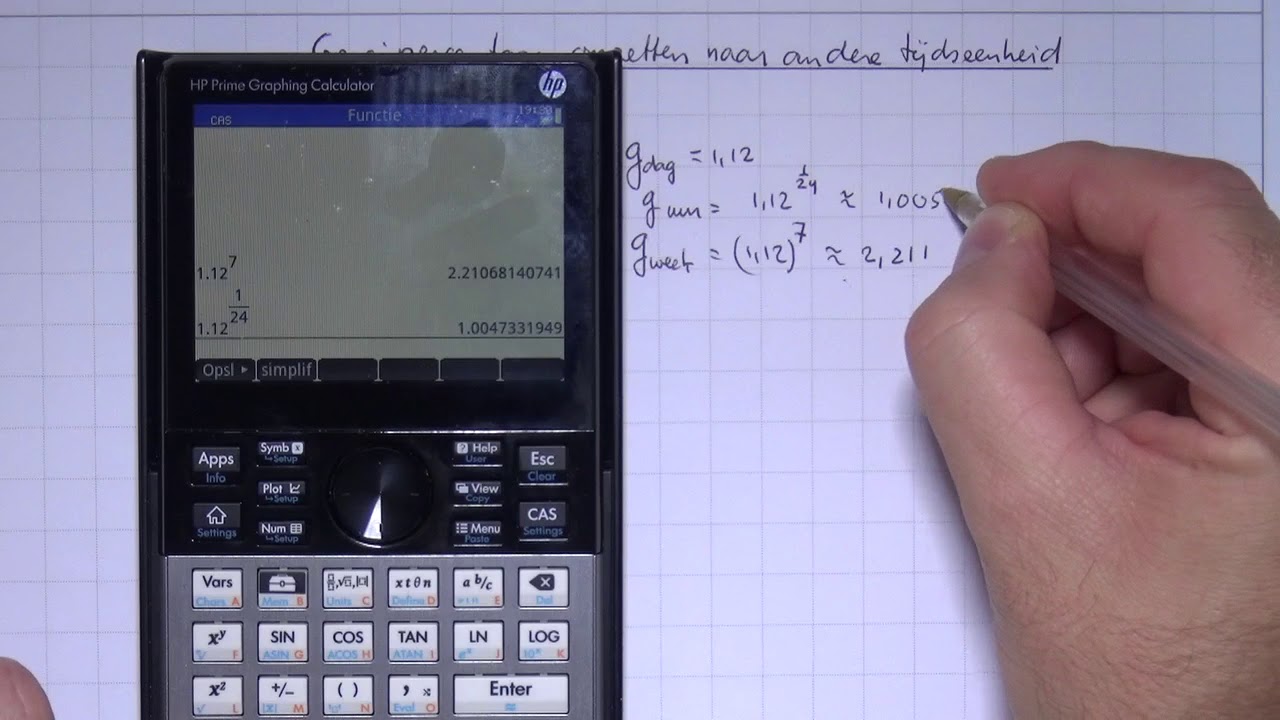 omzetten naar andere tijdseenheid
HP Prime Graphing Calculator
hp
CAS Functie
g dag = 1,12
g uur = 1,12^(1/24) ≈ 1,005
g week = (1,12)^7 ≈ 2,211
1.12^7 2.21068140741
1.12^(1/24) 1.0047331949
Opsl ▸ simplif
Apps Info
Symb Setup
Help User
Esc Clear
Plot Setup
View Copy
Settings
Num Setup
Menu Paste
CAS Settings
Vars Chars A
Mem B
Units C
x t θ n Define D
a b/c E
Del
x^y F
SIN ASIN G
COS ACOS H
TAN ATAN I
LN e^x J
LOG 10^x K
x² √ L
+/− |x| M
( ) N
, Eval O
Enter ≈